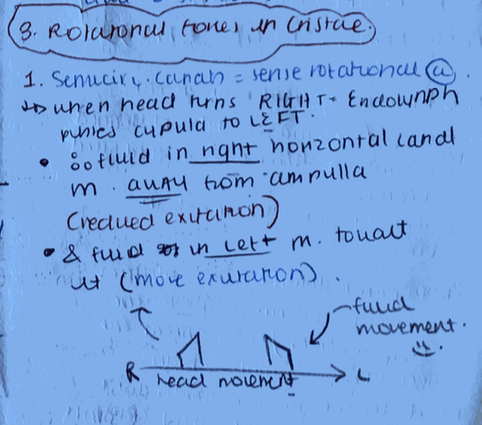 3. Rotational forces in Cristae.
1. Semicirc. canals = sense rotational a
↳ when head turns RIGHT - Endolymph
pushes cupula to LEFT.
• ∴ fluid in right horizontal canal
m. away from ampulla
(reduced excitation)
• & fluid in left m. toward
it (more excitation).
fluid
movement.
R head movement L